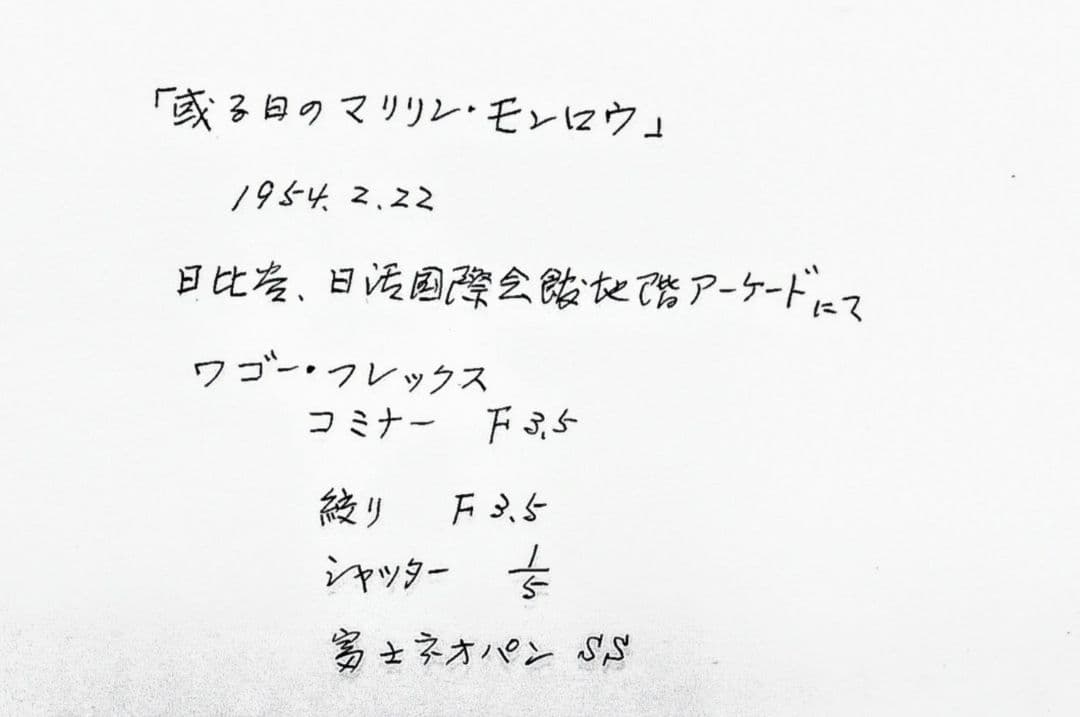 「或る日のマリリン・モンロウ」
1954.2.22
日比谷、日活国際会館地階アーケードにて
ワゴー・フレックス
コミナー F3.5
絞り F3.5
シャッター 1/5
富士ネオパン SS